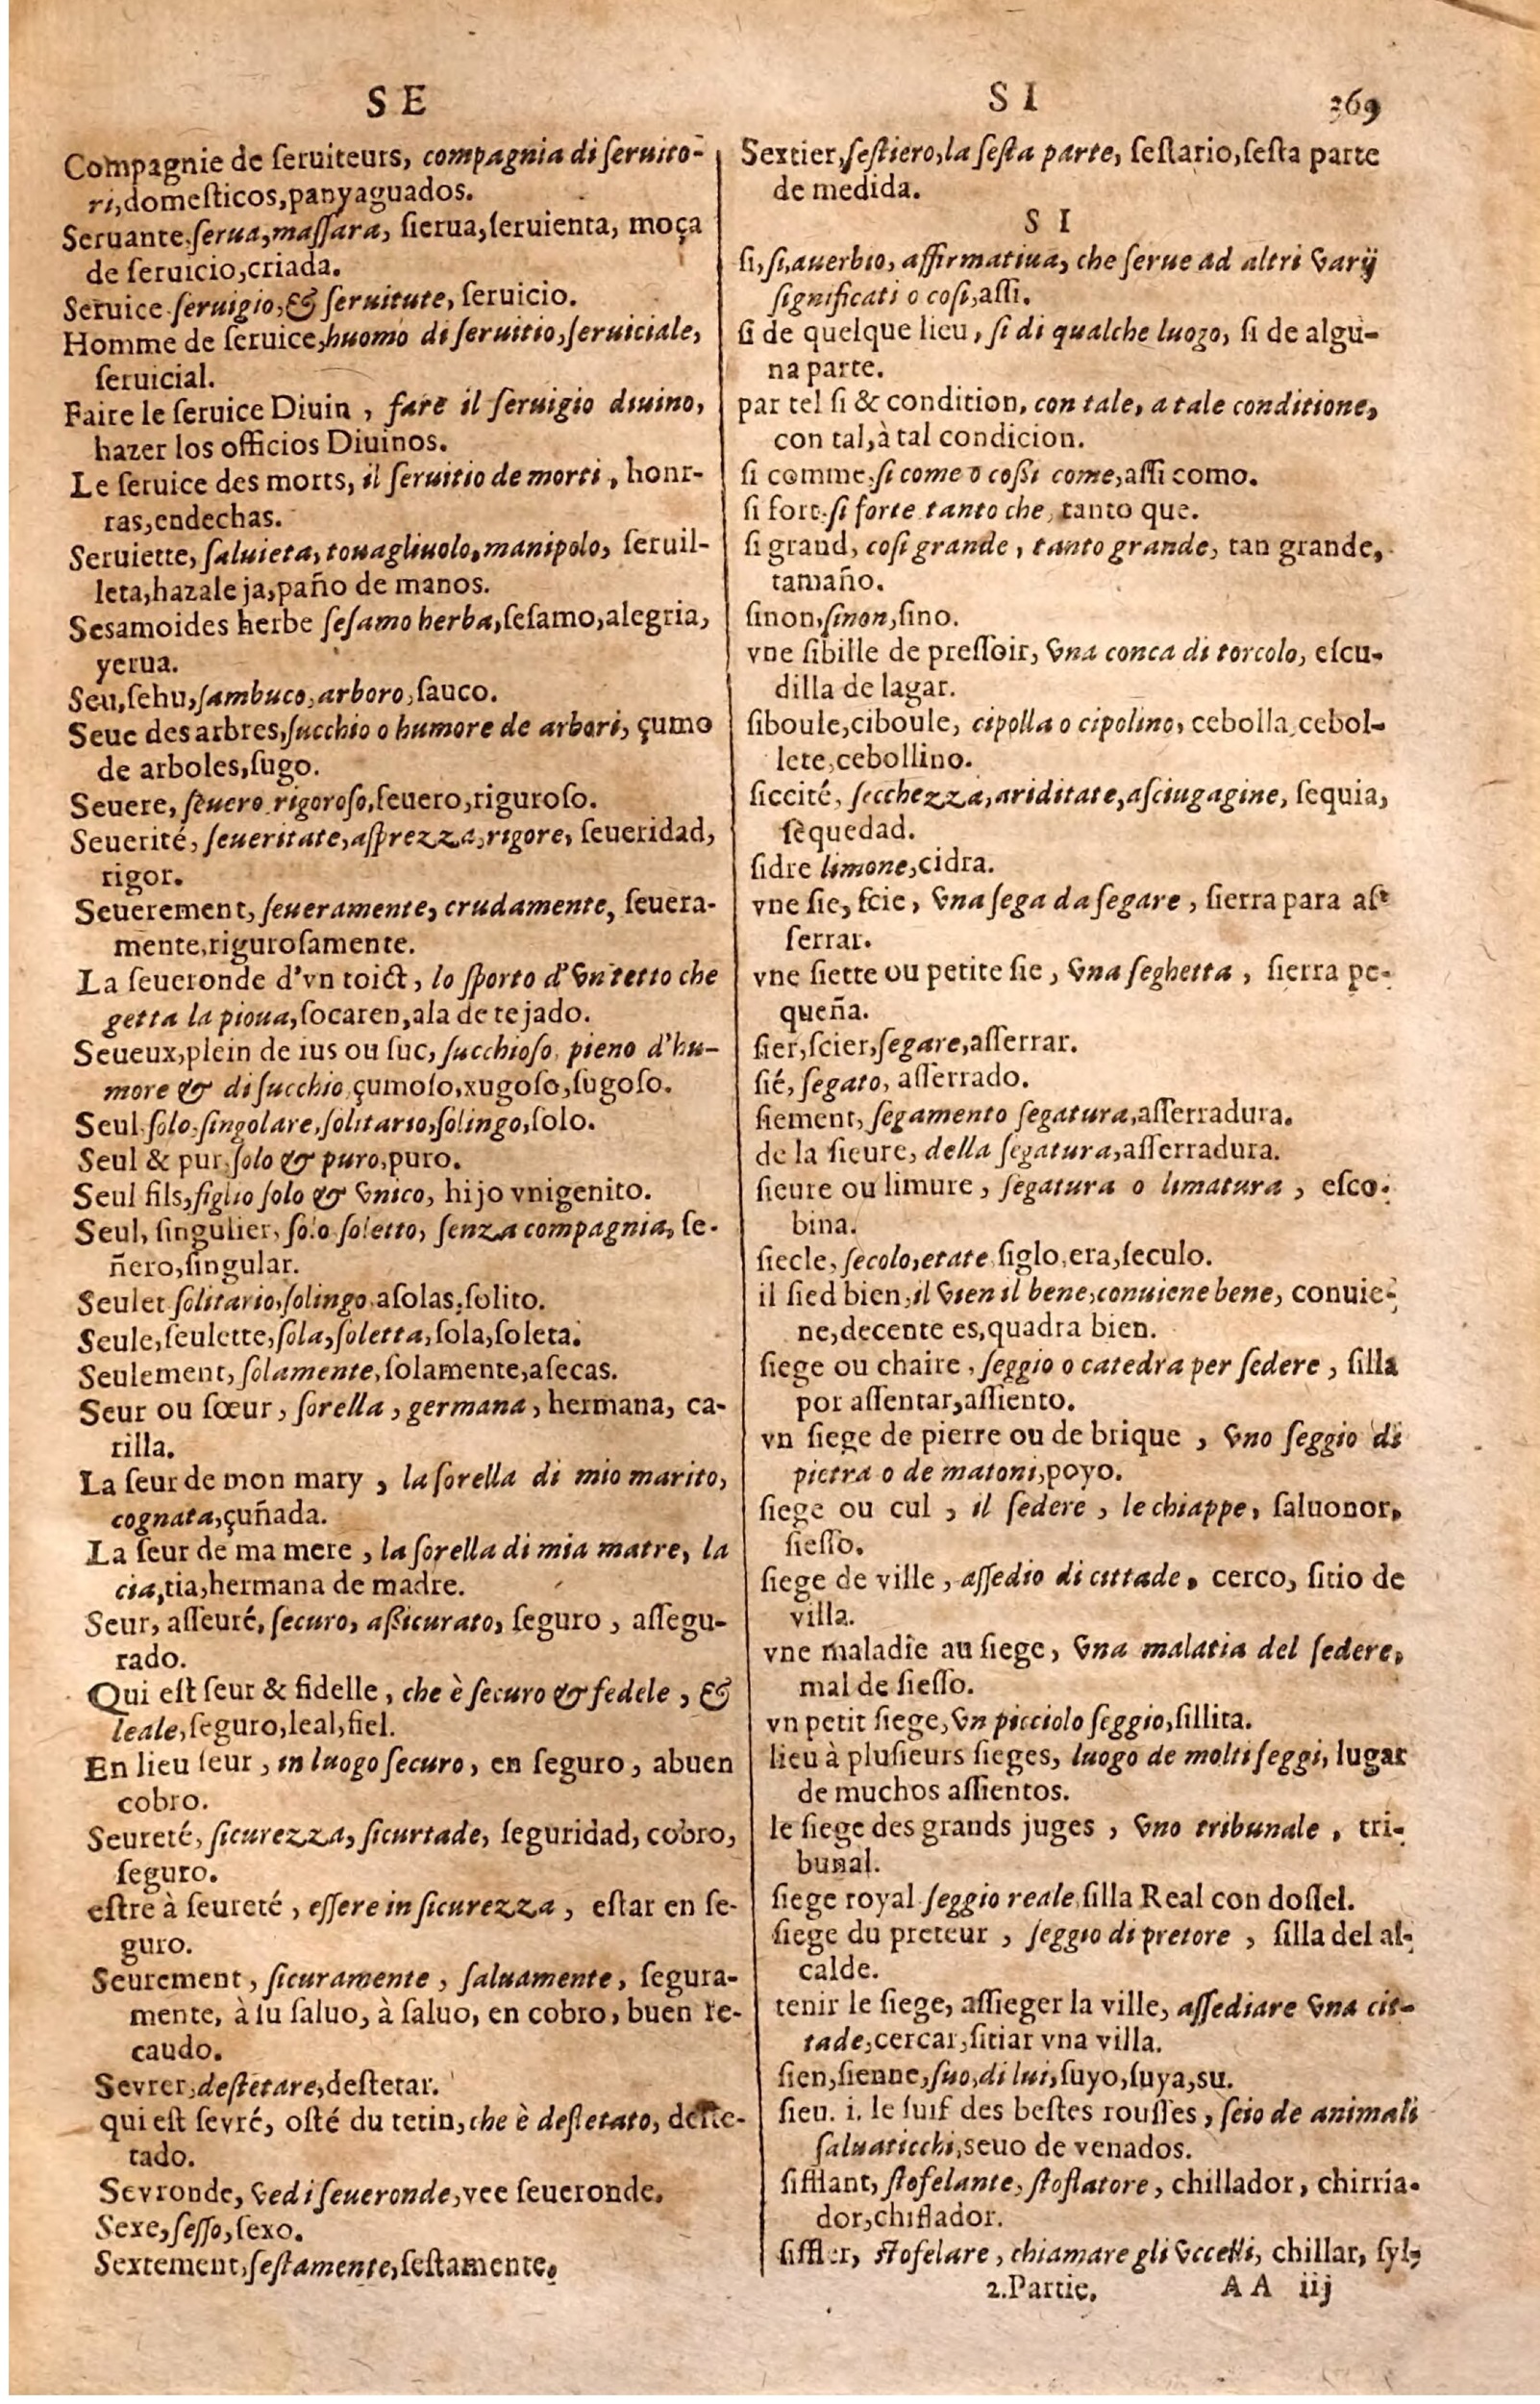 S E
Compagnie de ſeruiteurs, compagnia di ſeruito-
ri,domeſticos,panyaguados.
Seruante,ſerua,maſſara, ſierua,ſeruienta, moça
de ſeruicio,criada.
Seruice ſeruigio,& ſeruitute, ſeruicio.
Homme de ſeruice,huomo di ſeruitio,ſeruiciale,
ſeruicial.
Faire le ſeruice Diuin , fare il ſeruigio diuino,
hazer los officios Diuinos.
Le ſeruice des morts, il ſeruitio de morti , honr-
ras,endechas.
Seruiette, ſaluieta, touagliuolo,manipolo, ſeruil-
leta,hazaleja,paño de manos.
Sesamoides herbe ſeſamo herba,ſeſamo,alegria,
yerua.
Seu,ſehu,ſambuco,arboro,ſauco.
Seue des arbres,ſucchio o humore de arbori, çumo
de arboles,ſugo.
Seuere, ſeuero rigoroſo,ſeuero,riguroſo.
Seuerité, ſeueritate,aſprezza,rigore, ſeueridad,
rigor.
Seuerement, ſeueramente, crudamente, ſeuera-
mente,riguroſamente.
La ſeueronde d'vn toict, lo ſporto d'vn tetto che
getta la pioua,ſocaren,ala de tejado.
Seueux,plein de ius ou ſuc, ſucchioſo, pieno d'hu-
more & di ſucchio,çumoſo,xugoſo,ſugoſo.
Seul ſolo,ſingolare,ſolitario,ſolingo,ſolo.
Seul & pur,ſolo & puro,puro.
Seul fils,figlio ſolo & vnico, hijo vnigenito.
Seul, ſingulier, ſolo ſoletto, ſenza compagnia, ſe-
ñero,ſingular.
Seulet ſolitario,ſolingo,aſolas,ſolito.
Seule,ſeulette,ſola,ſoletta,ſola,ſoleta.
Seulement, ſolamente,ſolamente,aſecas.
Seur ou ſœur, ſorella , germana , hermana, ca-
rilla.
La ſeur de mon mary , la ſorella di mio marito,
cognata,çuñada.
La ſeur de ma mere , la ſorella di mia matre, la
cia,tia,hermana de madre.
Seur, aſſeuré, ſecuro, aßicurato, ſeguro , aſſegu-
rado.
Qui eſt ſeur & fidelle , che è ſecuro & fedele , &
leale,ſeguro,leal,fiel.
En lieu ſeur , in luogo ſecuro, en ſeguro , abuen
cobro.
Seureté, ſicurezza, ſicurtade, ſeguridad, cobro,
ſeguro.
eſtre à ſeureté , eſſere in ſicurezza , eſtar en ſe-
guro.
Seurement , ſicuramente , ſaluamente, ſegura-
mente, à ſu ſaluo, à ſaluo, en cobro, buen re-
caudo.
Sevrer,deſtetare,deſtetar.
qui eſt ſevré, oſté du tetin,che è deſtetato, deſte-
tado.
Sevronde, vedi ſeueronde,vee ſeueronde.
Sexe,ſeſſo,ſexo.
Sextement,ſeſtamente,ſeſtamente.
S I 369
Sextier,ſeſtiero,la ſeſta parte, ſeſtario,ſeſta parte
de medida.
S I
ſi,ſi,auerbio, affirmatiua, che ſerue ad altri varij
ſignificati o coſi,aſſi.
ſi de quelque lieu, ſi di qualche luogo, ſi de algu-
na parte.
par tel ſi & condition, con tale, a tale conditione,
con tal,à tal condicion.
ſi comme,ſi come o coßi come,aſſi como.
ſi fort ſi forte tanto che, tanto que.
ſi grand, coſi grande , tanto grande, tan grande,
tamaño.
ſinon,ſinon,ſino.
vne ſibille de preſſoir, vna conca di torcolo, eſcu-
dilla de lagar.
ſiboule,ciboule, cipolla o cipolino, cebolla,cebol-
lete,cebollino.
ſiccité, ſecchezza,ariditate,aſciugagine, ſequia,
ſequedad.
ſidre limone,cidra.
vne ſie, ſcie, vna ſega da ſegare , ſierra para aſ-
ſerrar.
vne ſiette ou petite ſie , vna ſeghetta , ſierra pe-
queña.
ſier,ſcier,ſegare,aſſerrar.
ſié, ſegato, aſſerrado.
ſiement, ſegamento ſegatura,aſſerradura.
de la ſieure, della ſegatura,aſſerradura.
ſieure ou limure , ſegatura o limatura , eſco-
bina.
ſiecle, ſecolo,etate ſiglo,era,ſeculo.
il ſied bien,il vien il bene,conuiene bene, conuie-
ne,decente es,quadra bien.
ſiege ou chaire , ſeggio o catedra per ſedere , ſilla
por aſſentar,aſſiento.
vn ſiege de pierre ou de brique , vno ſeggio di
pietra o de matoni,poyo.
ſiege ou cul , il ſedere , le chiappe, ſaluonor,
ſieſſo.
ſiege de ville , aſſedio di cittade, cerco, ſitio de
villa.
vne maladie au ſiege, vna malatia del ſedere,
mal de ſieſſo.
vn petit ſiege,vn picciolo ſeggio,ſillita.
lieu à pluſieurs ſieges, luogo de molti ſeggi, lugar
de muchos aſſientos.
le ſiege des grands juges , vno tribunale , tri-
bunal.
ſiege royal ſeggio reale,ſilla Real con doſſel.
ſiege du preteur , ſeggio di pretore , ſilla del al-
calde.
tenir le ſiege, aſſieger la ville, aſſediare vna cit-
tade,cercar,ſitiar vna villa.
ſien,ſienne,ſuo,di lui,ſuyo,ſuya,su.
ſieu. i. le ſuif des beſtes rouſſes , ſeio de animali
ſaluaticchi,seuo de venados.
ſifflant, ſtofelante, ſtoflatore , chillador, chirria-
dor,chiflador.
ſiffler, ſtofelare , chiamare gli vccelli, chillar, ſyl-
2.Partie. A A iij